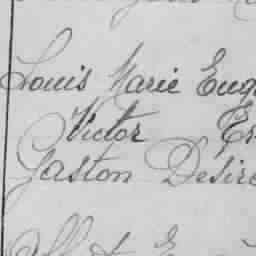 Louis Marie Eug
Victor Er
Gaston Desire